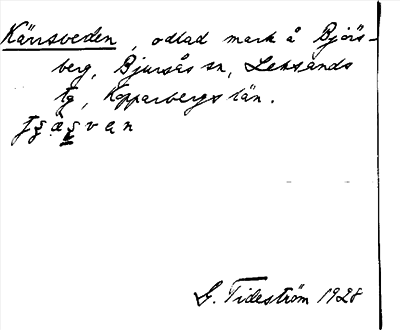 Kärrsveden, odlad mark å Björs-
berg, Bjursås sn, Leksands
tg, Kopparbergs län.
G. Tideström 1928